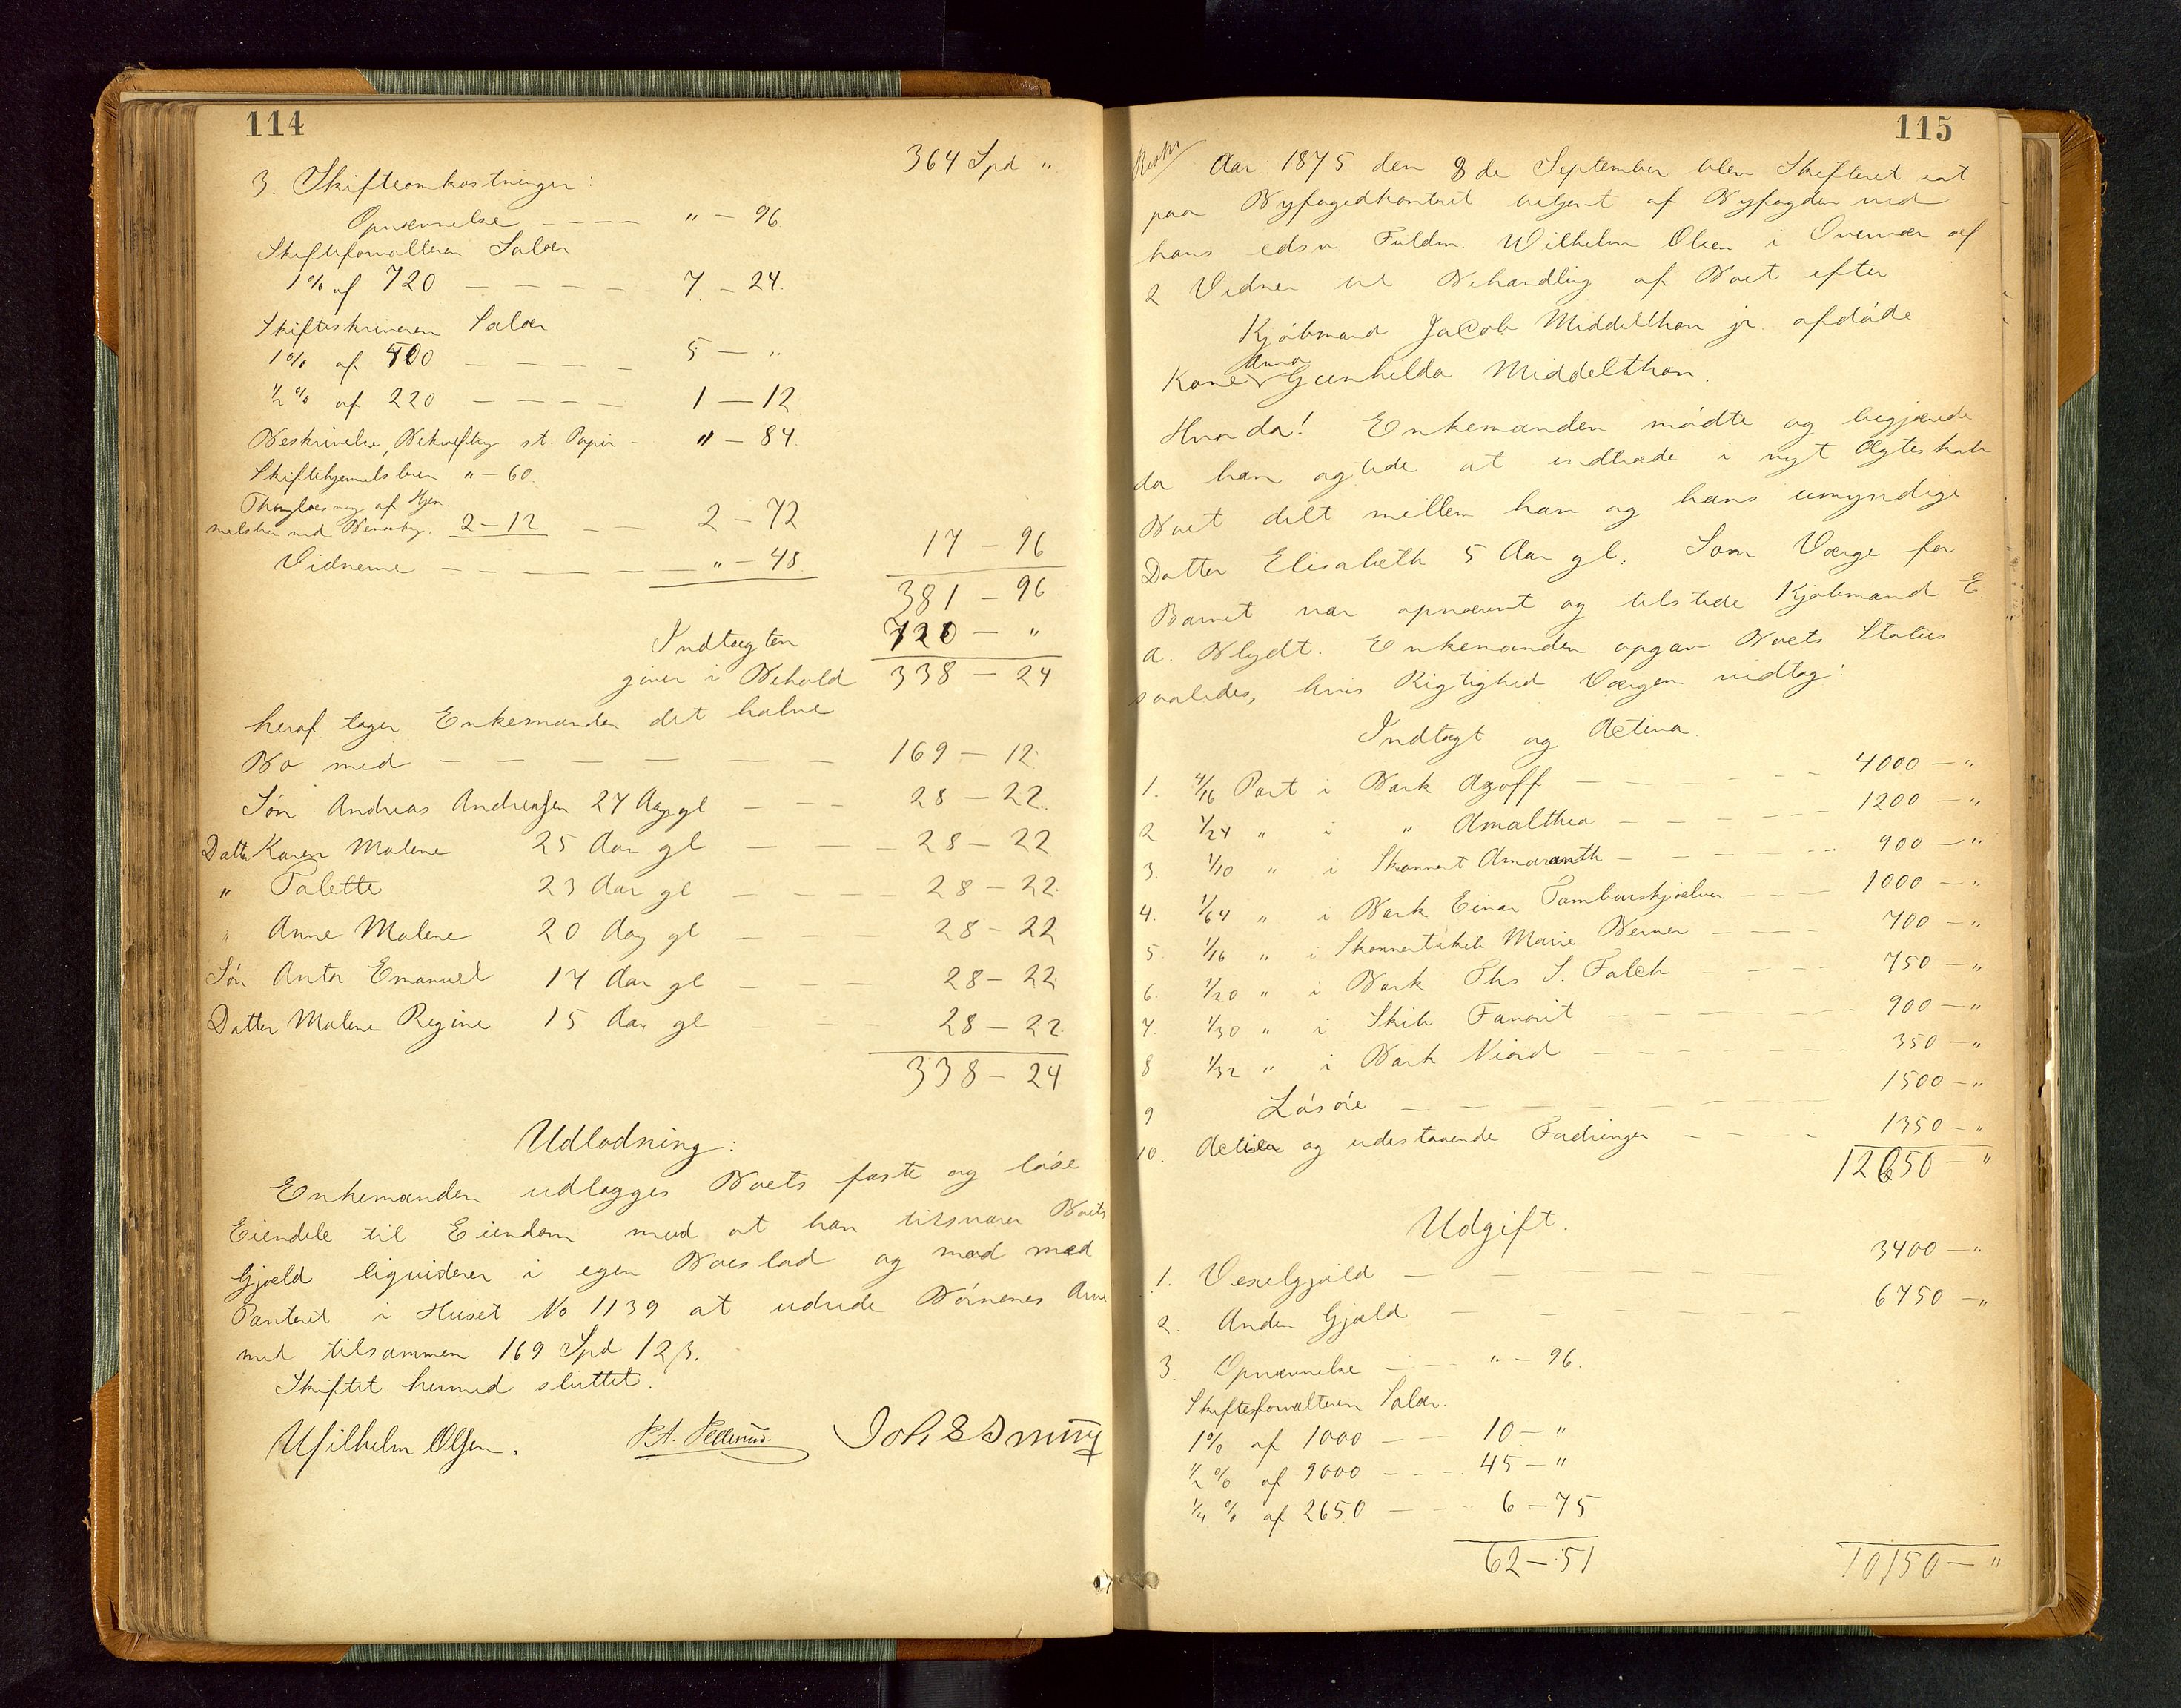 114
364 Spd "
3. Skifteomkostninger:
Opnævnelse - - - - " - 96
Skifteforvalteren Salær
1 % af 720 - - - - - - 7 - 24.
Skifteskriveren Salær
1 % af 500 - - - - 5 - "
½ % af 220 - - - - 1 - 12
Beskrivelse, Bekræftelse st. Papir - " - 84.
Skiftehjemmelsbrev " - 60.
Thinglæsning af Hjem-
melsbrev med Bevidn. 2 - 12 - - 2 - 72
Vidnerne - - - - - " - 48 17 - 96
381 - 96
Indtægten 720 - "
giver i Behold 338 - 24
heraf tager Enkemanden det halve
Bo med - - - - - - - 169 - 12.
Søn Andreas Andreassen 27 Aar gl - - - 28 - 22.
Datter Karen Malene 25 Aar gl - - - 28 - 22
" Talette 23 Aar gl - - - - 28 - 22.
" Anne Malene 20 Aar gl - - - 28 - 22
Søn Anton Emanuel 17 Aar gl - - - 28 - 22.
Datter Malene Regine 15 Aar gl - - - 28 - 22.
338 - 24
Udlodning:
Enkemanden udlægges Boets faste og løse
Eiendele til Eiendom mod at han tilsvarer Boets
Gjæld liquiderer i egen Boeslod og mod med
Panteret i Huset No 1139 at udrede Børnenes Arve
med tilsammen 169 Spd 12 ß.
Skiftet hermed sluttet.
Wilhelm Olsen. P.A. Pedersen.
115
Aar 1875 den 8de September blev Skifteret sat
paa Byfogedkontoret betjent af Byfogden ved
hans edsv. Fuldm. Wilhelm Olsen i Overvær af
2 Vidner til Behandling af Boet efter
Kjøbmand Jacob Middelthon jr. afdøde
Kone Anna Gunhilda Middelthon.
Hvorda! Enkemanden mødte og begjærede
da han agtede at indtræde i nyt Ægteskab
Boet delt mellem ham og hans umyndige
Datter Elisabeth 5 Aar gl. Som Værge for
Barnet var opnævnt og tilstede Kjøbmand E.
A. Blydt. Enkemanden opgav Boets Status
saaledes, hvis Rigtighed Værgen vedtog:
Indtægt og Activa.
1. 4/16 Part i Bark Azoff - - - - 4000 - "
2 1/24 " i " Amalthea - - - - - 1200 - "
3. 1/10 " i Skonnert Amaranth - - - - - 900 - "
4. 1/64 " i Bark Einar Tambarskjælver - - - 1000 - "
5 1/16 " i Skonnertskib Marie Berner - - - - 700 - "
6. 1/20 " i Bark Ths S. Falck - - - - 750 - "
7. 1/30 " i Skib Favorit - - - - - 900 - "
8 1/32 " i Bark Niord - - - - - 350 - "
9 Løsøre - - - - - - - 1500 - "
10. Actier og udestaaende Fordringer - - - - 1350 - "
12650 - "
Udgift.
1. Vexelgjæld - - - - - - 3400 - "
2. Anden Gjæld - - - - - 6750 - "
3. Opnævnelse - - - " - 96.
Skifteforvalteren Salær.
1 % af 1000 - - - 10 - "
½ % af 9000 - - - - 45 - "
¼ % af 2650 - - - 6 - 75
62 - 51 10150 - "